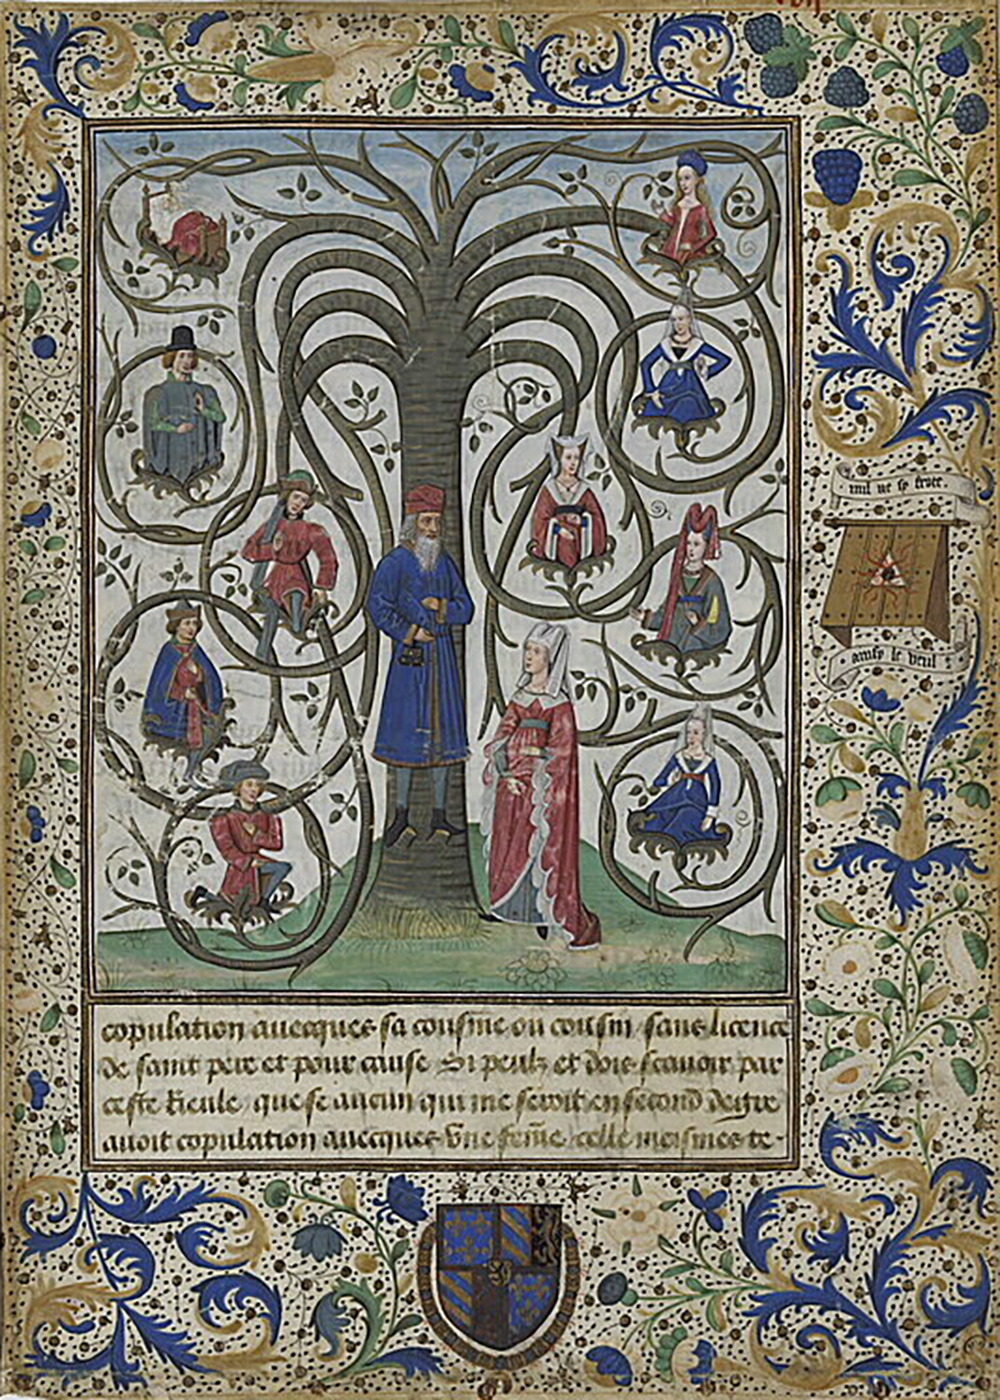 nul ne sy frote.
ainsy le veul
copulation auecques sa cousine ou cousin / sans licence
de saint pere et pour cause Si peulz et dois scauoir par
ceste Rieule / que se aucun qui me seroit en second degre
auoit copulation auecques vne fēme / celle meismes te-